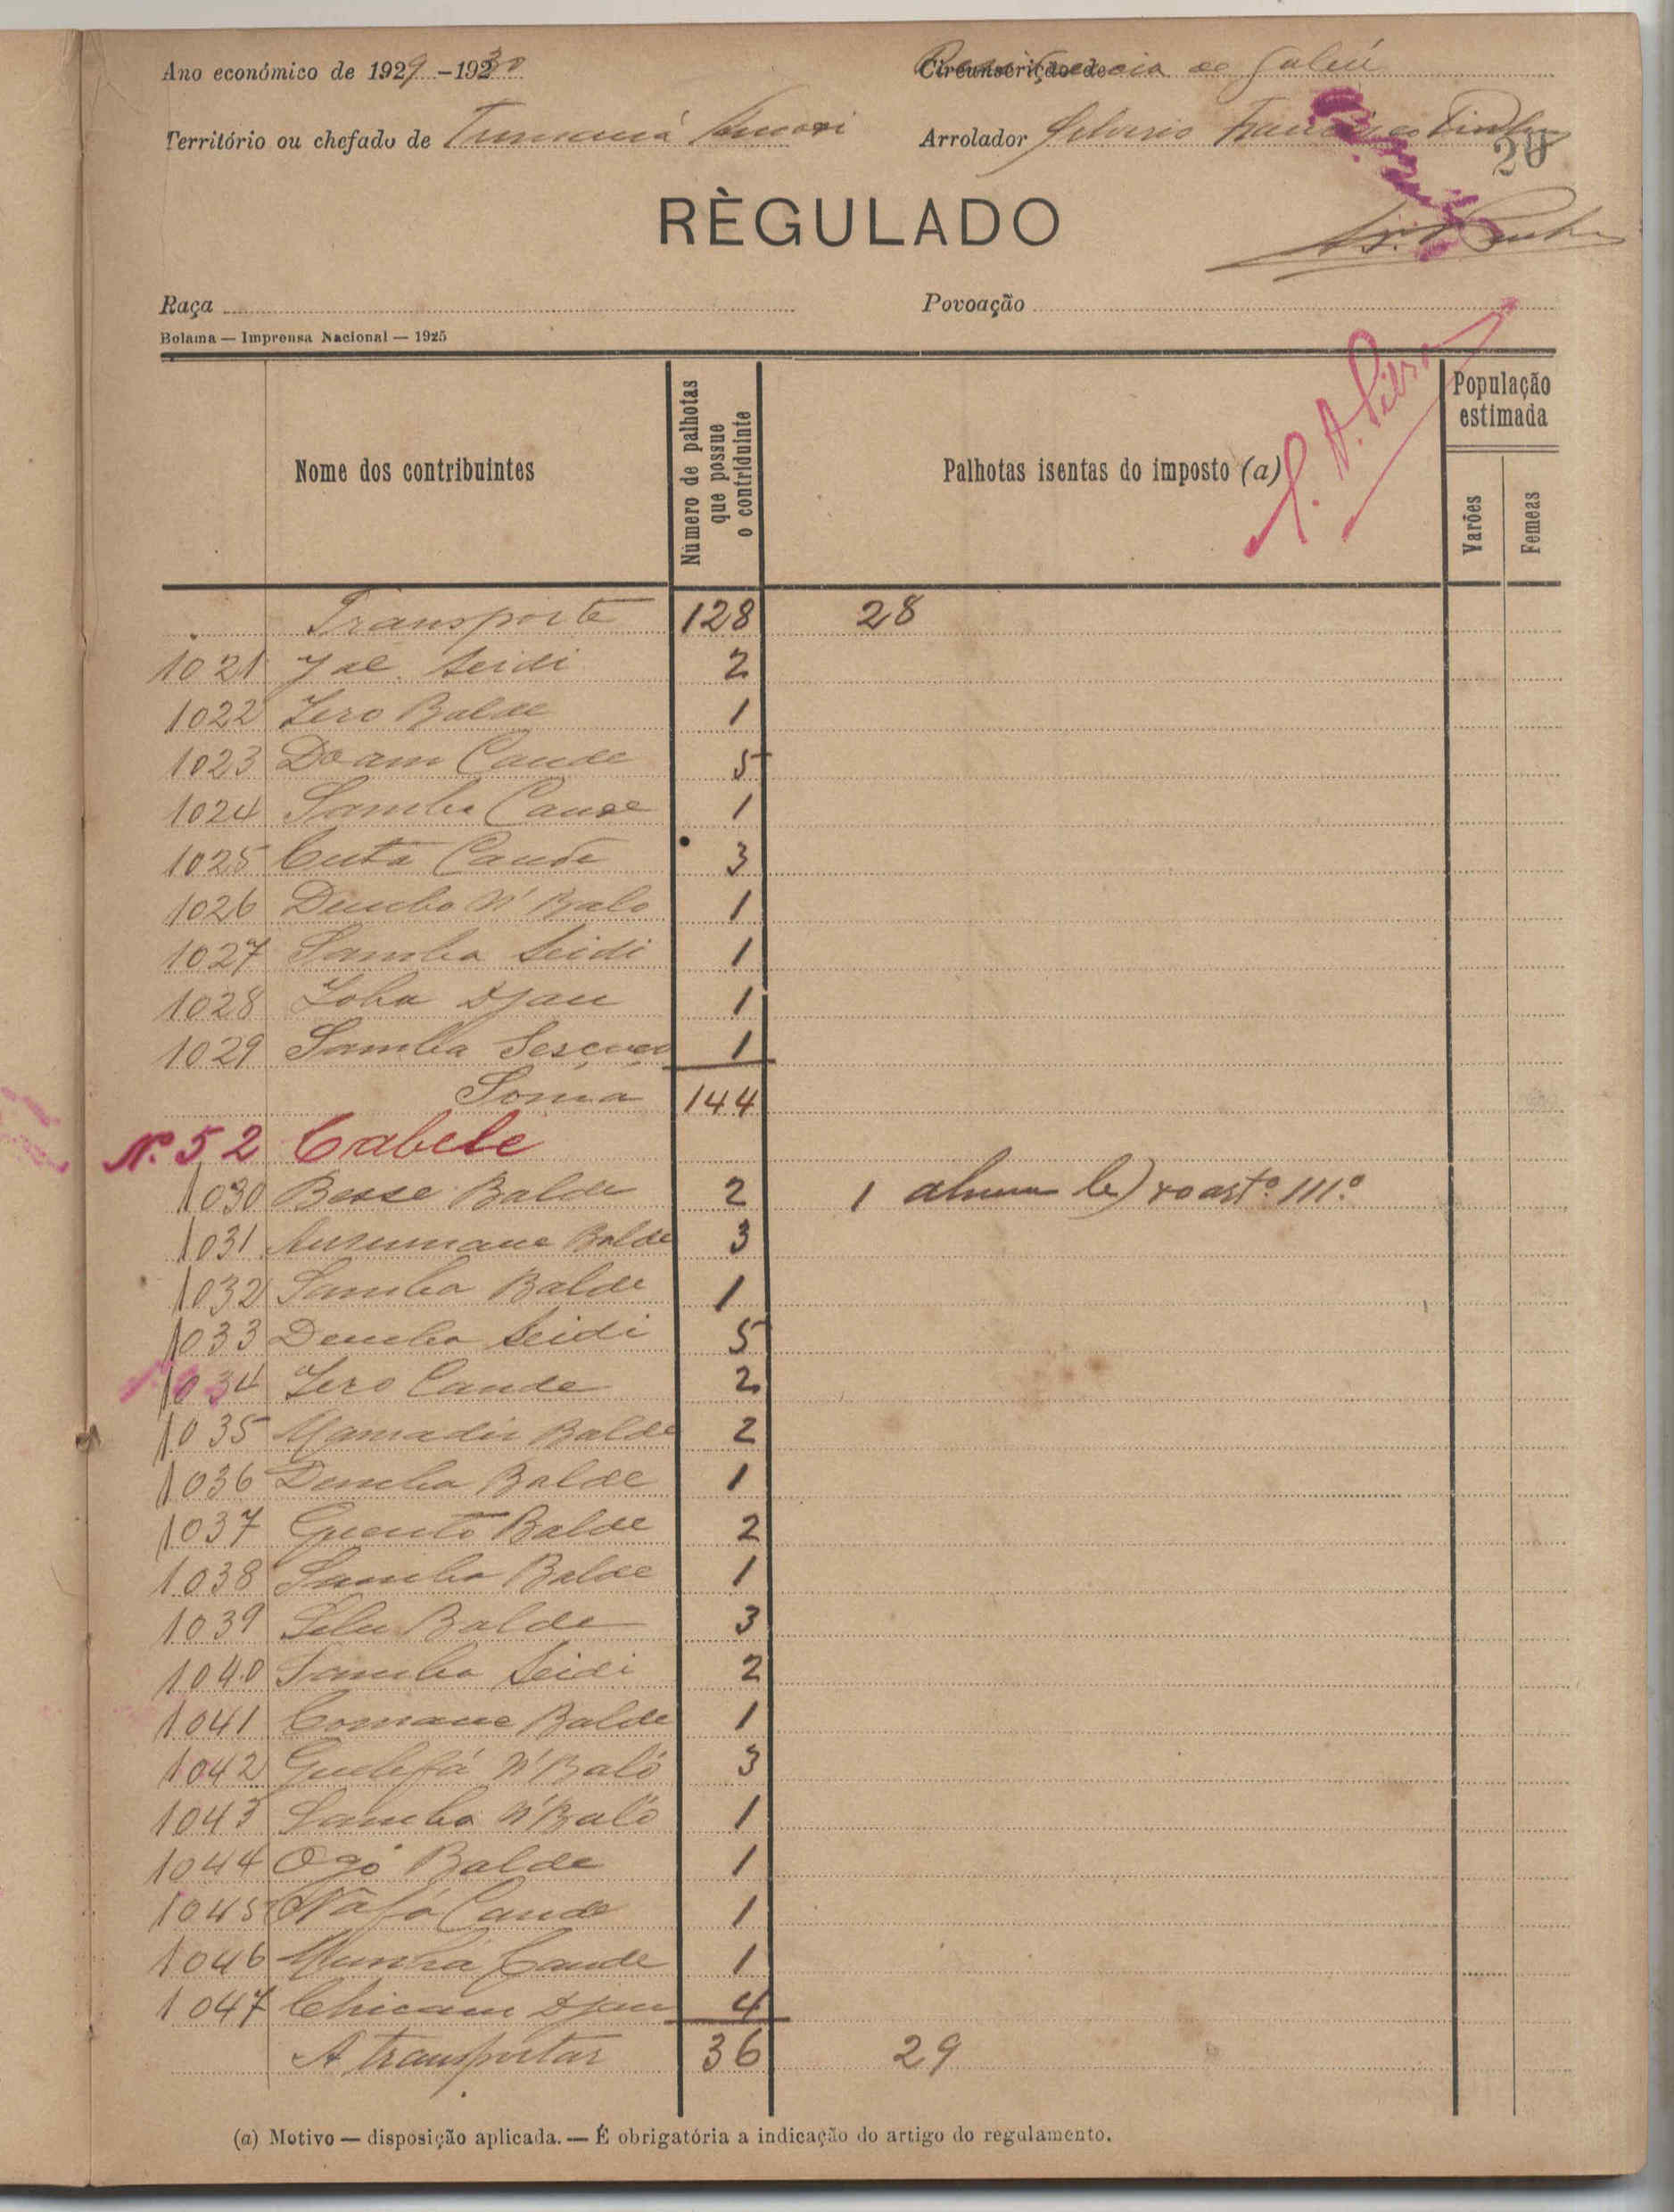 Ano económico de 1929-1930
Circunscrição de Gabú
Território ou chefado de Tumaná
Arrolador Silverio Francisco Pinho
20
RÈGULADO
Raça
Povoação
Bolama — Imprensa Nacional — 1925
Nome dos contribuintes
Nùmero de palhotas que possue o contriduinte
Palhotas isentas do imposto (a)
População estimada
Varões
Femeas
Transporte 128 28
1021 Seidi 2
1022 Iero Balde 1
1023 Doam Cande 5
1024 Samba Cande 1
1025 Cuta Cande 3
1026 Demba N'Balo 1
1027 Samba Seidi 1
1028 Ioba Djau 1
1029 Samba 1
Soma 144
N.º 52 Cabele
1030 Besse Balde 2 1 ao artº 111.º
1031 Balde 3
1032 Samba Balde 1
1033 Demba Seidi 5
1034 Iero Cande 2
1035 Mamadú Balde 2
1036 Demba Balde 1
1037 Guento Balde 2
1038 Samba Balde 1
1039 Balde 3
1040 Samba Seidi 2
1041 Comane Balde 1
1042 Guelefá N'Baló 3
1043 Samba N'Baló 1
1044 Ogó Balde 1
1045 Náfó Cande 1
1046 Cande 1
1047 Chicam Djau 4
A transportar 36 29
(a) Motivo — disposição aplicada. — É obrigatória a indicação do artigo do regulamento.